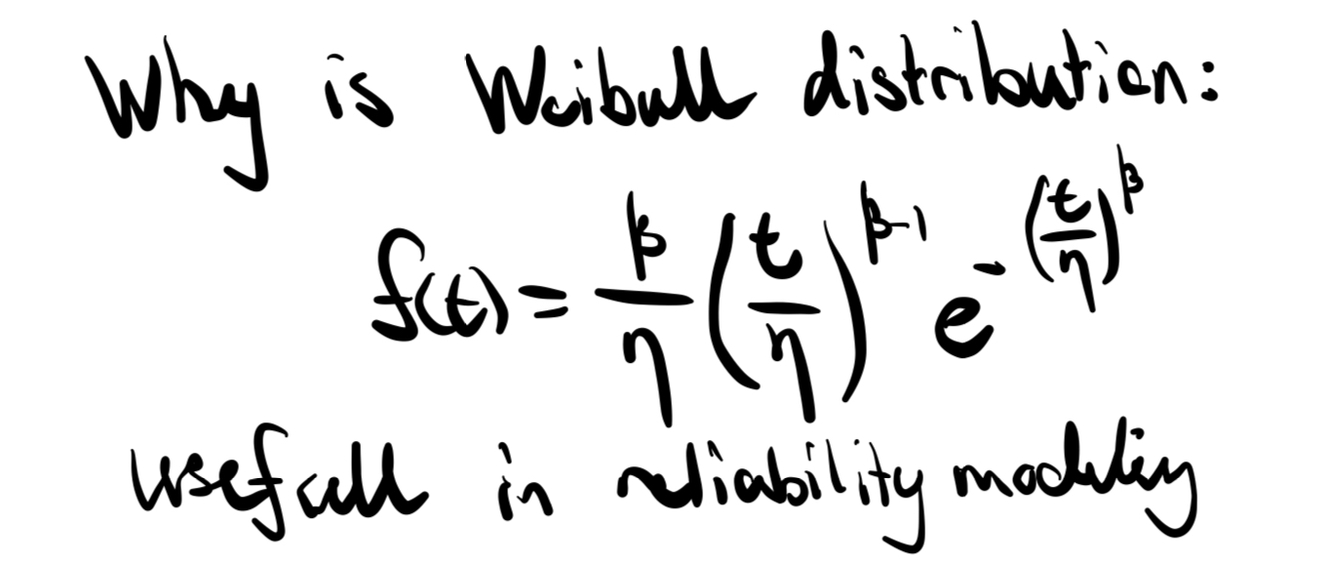 Why is Weibull distribution:
f(t) = β/η (t/η)^(β-1) e^(-(t/η)^β)
usefull in reliability modeling